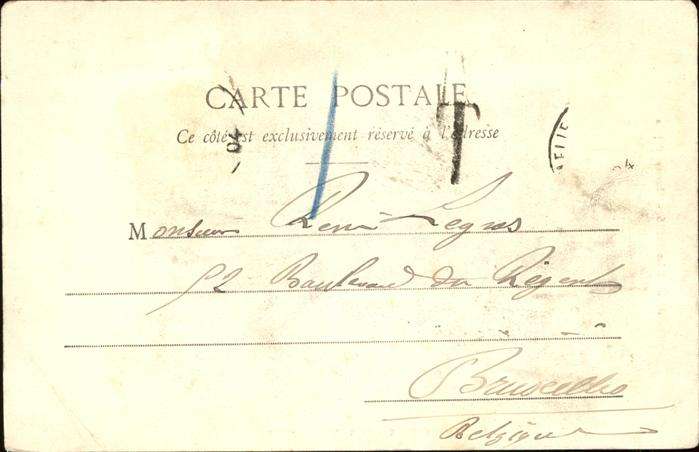 CARTE POSTALE
T
Ce côté est exclusivement réservé à l'adresse
04
Monsieur René Legros
52 Boulevard du Régent
Bruxelles
Belgique